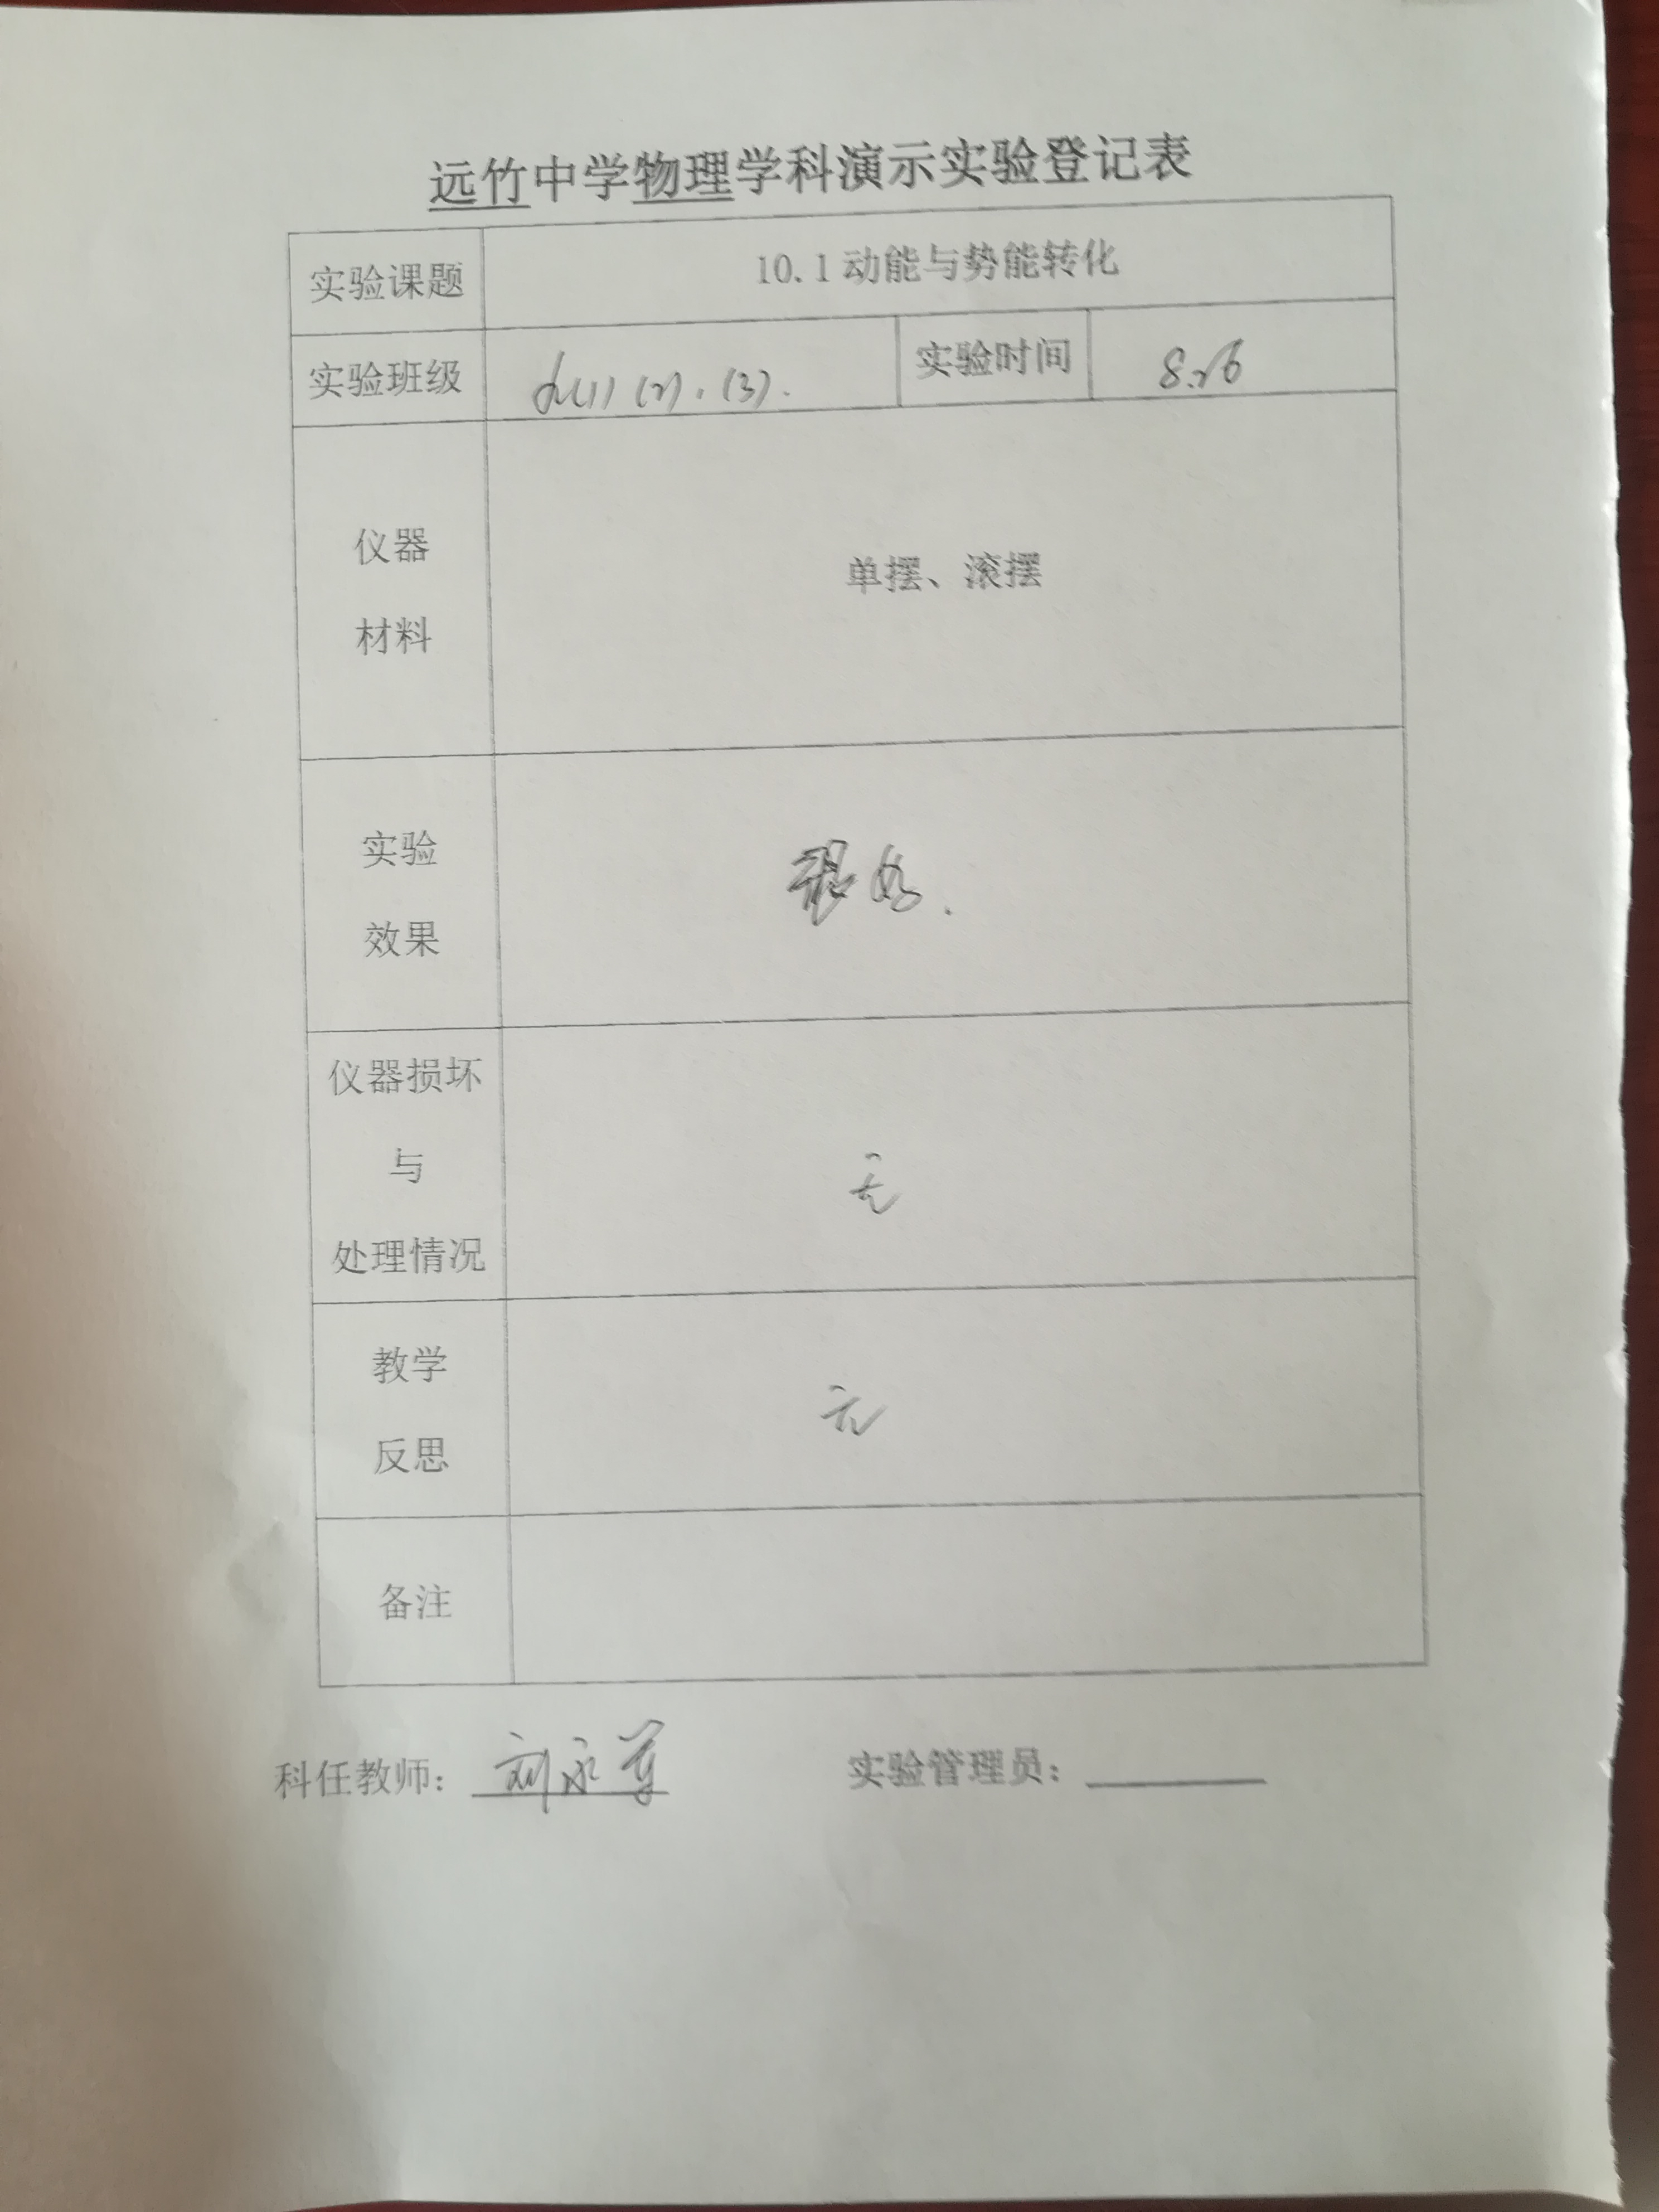 远竹中学物理学科演示实验登记表
实验课题 10.1动能与势能转化
实验班级 九(1) (2)、(3). 实验时间 8.26
仪器
材料
单摆、滚摆
实验
效果
很好.
仪器损坏
与
处理情况
无
教学
反思
无
备注
科任教师: 刘永 实验管理员: